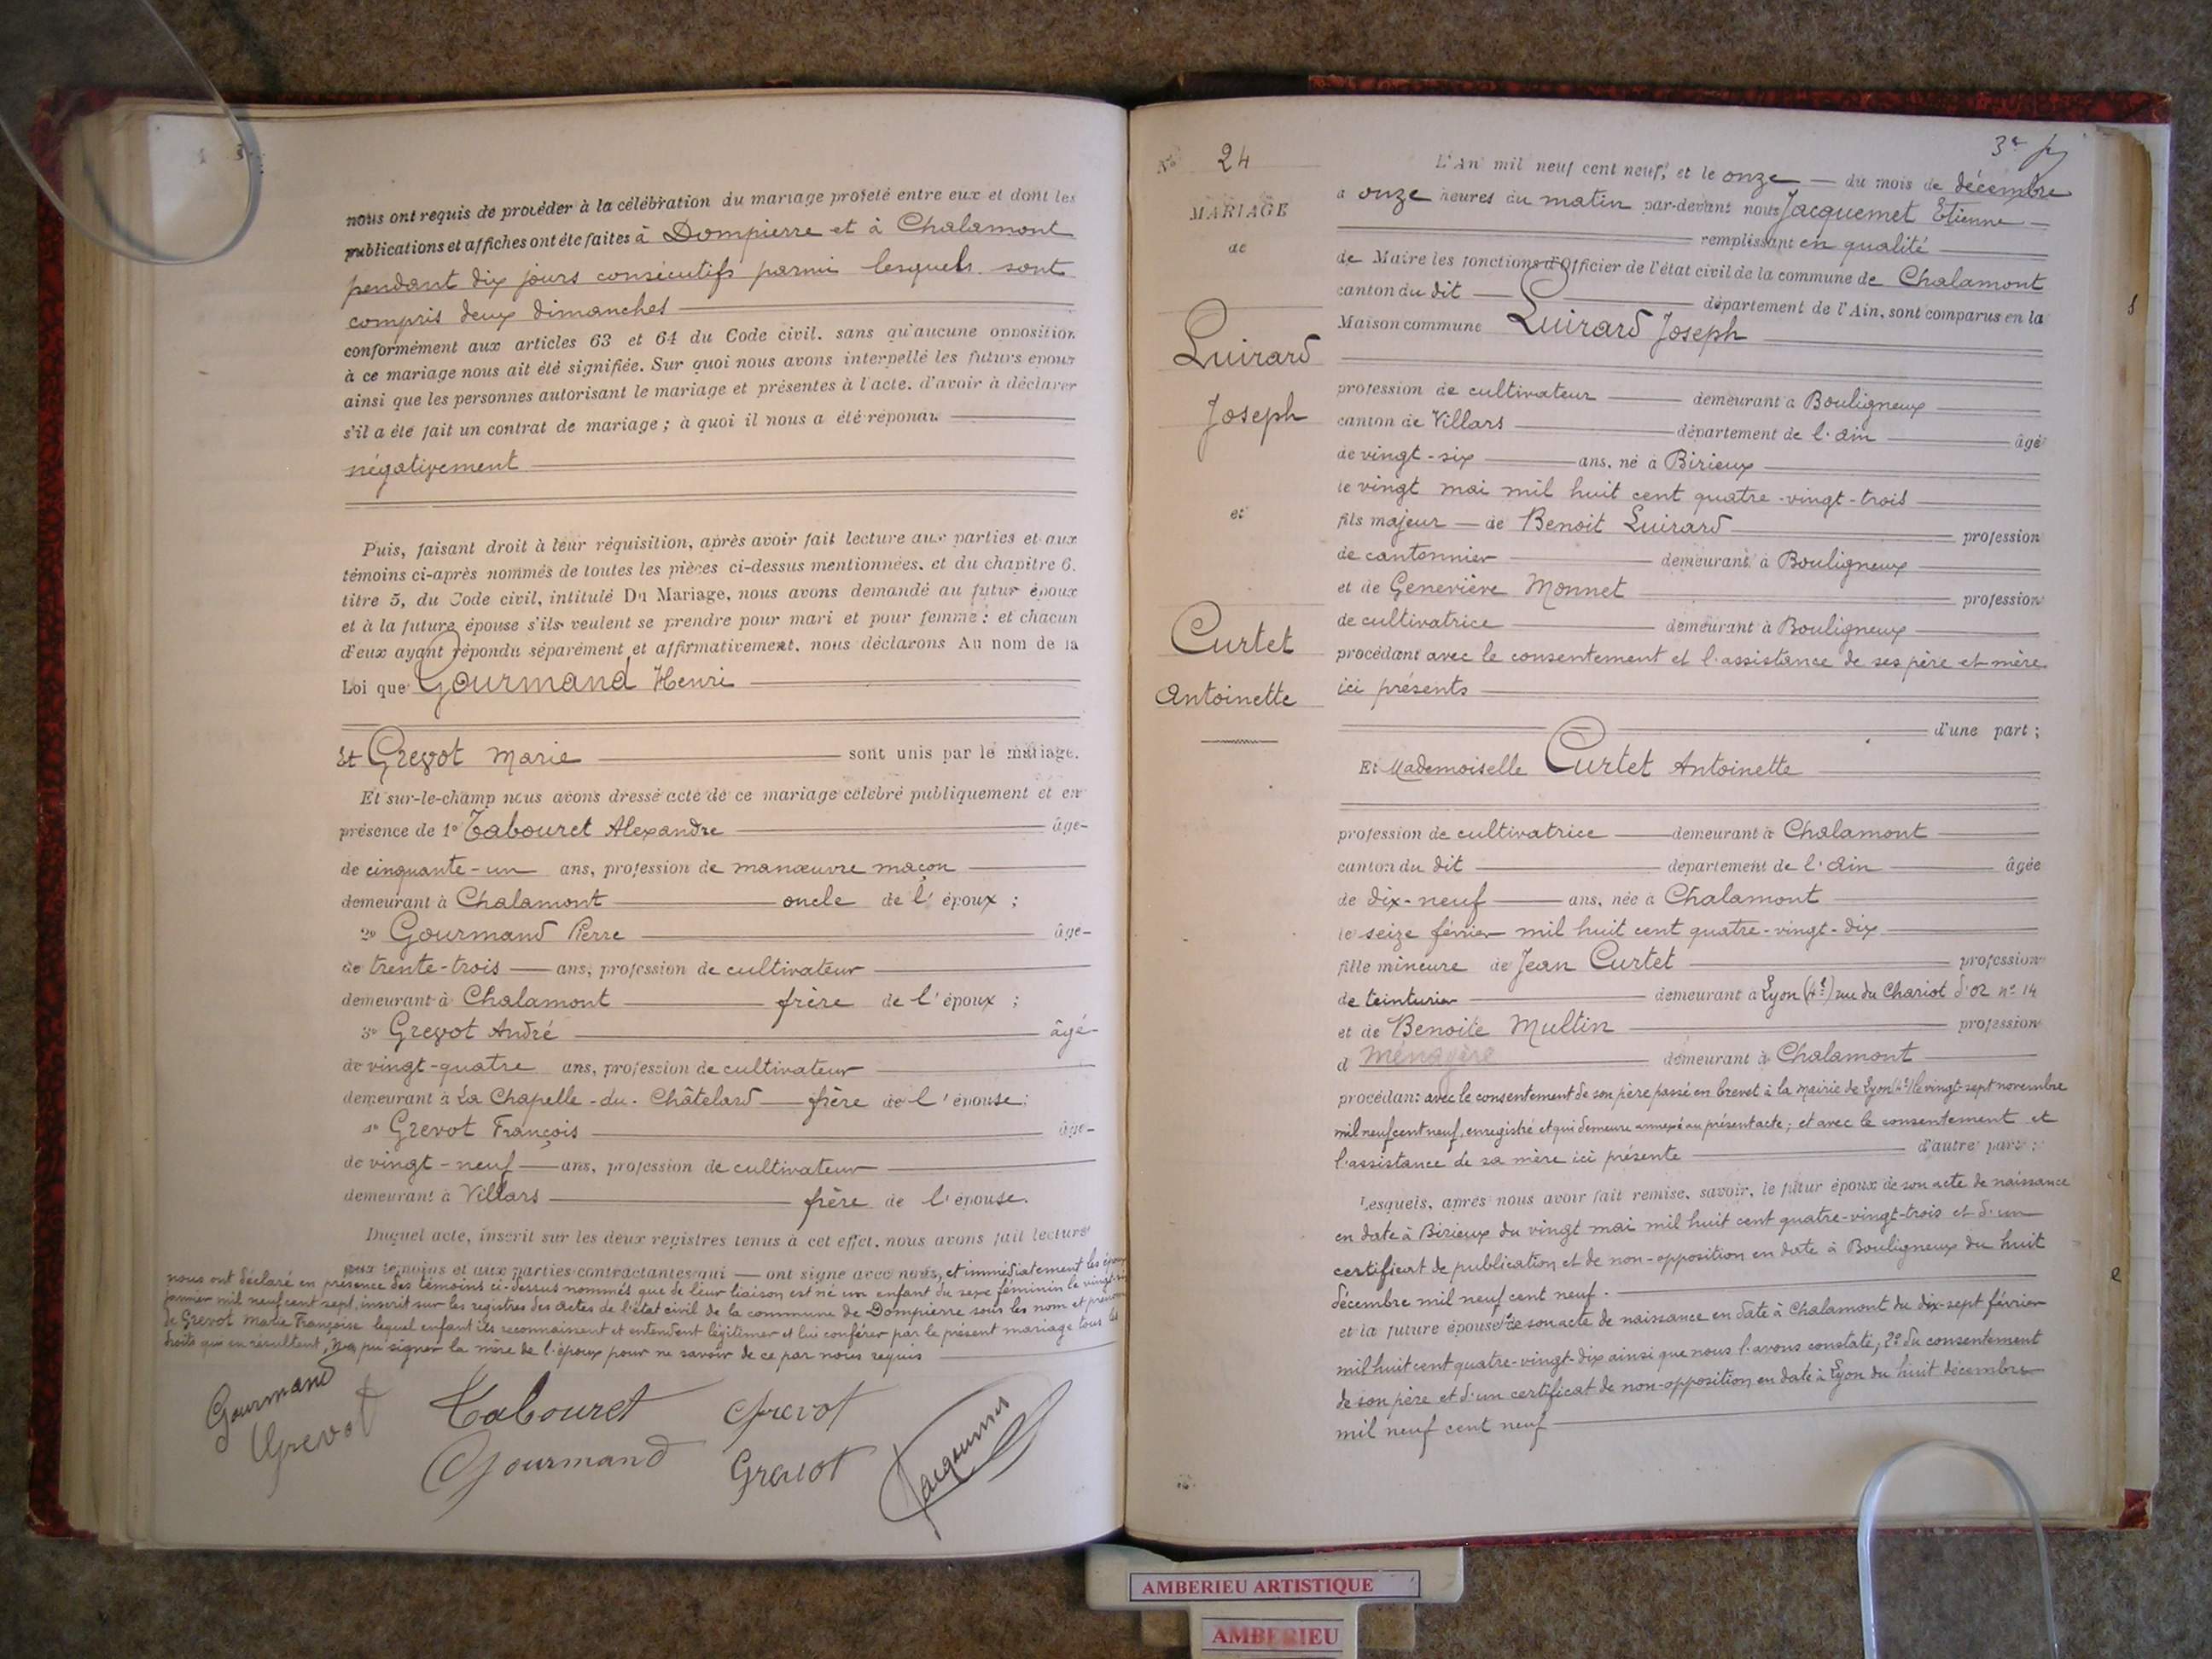 nous ont requis de procéder à la célébration du mariage projeté entre eux et dont les
publications et affiches ont été faites à Dompierre et à Chalamont
pendant dix jours consécutifs parmi lesquels sont
compris deux dimanches
conformément aux articles 63 et 64 du Code civil, sans qu'aucune opposition
à ce mariage nous ait été signifiée. Sur quoi nous avons interpellé les futurs époux
ainsi que les personnes autorisant le mariage et présentes à l'acte, d'avoir à déclarer
s'il a été fait un contrat de mariage ; à quoi il nous a été répondu
négativement
Puis, faisant droit à leur réquisition, après avoir fait lecture aux parties et aux
témoins ci-après nommés de toutes les pièces ci-dessus mentionnées, et du chapitre 6,
titre 5, du Code civil, intitulé Du Mariage, nous avons demandé au futur époux
et à la future épouse s'ils veulent se prendre pour mari et pour femme : et chacun
d'eux ayant répondu séparément et affirmativement, nous déclarons Au nom de la
Loi que Gourmand Henri
Et Grevot Marie sont unis par le mariage.
Et sur-le-champ nous avons dressé acte de ce mariage célébré publiquement et en
présence de 1° Tabouret Alexandre âgé
de cinquante-un ans, profession de manœuvre maçon
demeurant à Chalamont oncle de l'époux ;
2° Gourmand Pierre âgé
de trente-trois ans, profession de cultivateur
demeurant à Chalamont frère de l'époux ;
3° Grevot André âgé
de vingt-quatre ans, profession de cultivateur
demeurant à La Chapelle-du-Châtelard frère de l'épouse ;
4° Grevot François âgé
de vingt-neuf ans, profession de cultivateur
demeurant à Villars frère de l'épouse.
Duquel acte, inscrit sur les deux registres tenus à cet effet, nous avons fait lecture
aux témoins et aux parties contractantes qui ont signé avec nous, et immédiatement les époux
nous ont déclaré en présence des témoins ci-dessus nommés que de leur liaison est né un enfant du sexe féminin le
janvier mil neuf cent sept, inscrit sur les registres des actes de l'état civil de la commune de Dompierre sous les nom et prénoms
de Grevot Marie Françoise lequel enfant ils reconnaissent et entendent légitimer et lui conférer par le présent mariage tous les
droits qui en résultent, n'a pu signer la mère de l'époux pour ne savoir de ce par nous requis
Gourmand Tabouret Grevot
Grevot Gourmand Grevot Jacquemet
N° 24
MARIAGE
de
Luirard
Joseph
et
Curtet
Antoinette
3e
L'An mil neuf cent neuf, et le onze du mois de décembre
à onze heures du matin par-devant nous Jacquemet Etienne
remplissant en qualité
de Maire les fonctions d'Officier de l'état civil de la commune de Chalamont
canton du dit département de l'Ain, sont comparus en la
Maison commune Luirard Joseph
profession de cultivateur demeurant à Bouligneux
canton de Villars département de l'Ain âgé
de vingt-six ans, né à Birieux
le vingt mai mil huit cent quatre-vingt-trois
fils majeur de Benoit Luirard profession
de cantonnier demeurant à Bouligneux
et de Geneviève Monnet profession
de cultivatrice demeurant à Bouligneux
procédant avec le consentement et l'assistance de ses père et mère
ici présents
d'une part ;
Et Mademoiselle Curtet Antoinette
profession de cultivatrice demeurant à Chalamont
canton du dit département de l'Ain âgée
de dix-neuf ans, née à Chalamont
le seize février mil huit cent quatre-vingt-dix
fille mineure de Jean Curtet profession
de teinturier demeurant à Lyon (4e) rue du Chariot d'or n° 14
et de Benoite Multin profession
d ménagère demeurant à Chalamont
procédant avec le consentement de son père passé en brevet à la mairie de Lyon (4e) le vingt-sept novembre
mil neuf cent neuf, enregistré et qui demeure annexé au présent acte ; et avec le consentement et
l'assistance de sa mère ici présente d'autre part ;
Lesquels, après nous avoir fait remise, savoir, le futur époux de son acte de naissance
en date à Birieux du vingt mai mil huit cent quatre-vingt-trois et d'un
certificat de publication et de non-opposition en date à Bouligneux du huit
décembre mil neuf cent neuf.
et la future épouse 1° de son acte de naissance en date à Chalamont du dix-sept février
mil huit cent quatre-vingt-dix ainsi que nous l'avons constaté, 2° du consentement
de son père et d'un certificat de non-opposition en date à Lyon du huit décembre
mil neuf cent neuf
AMBERIEU ARTISTIQUE
AMBERIEU